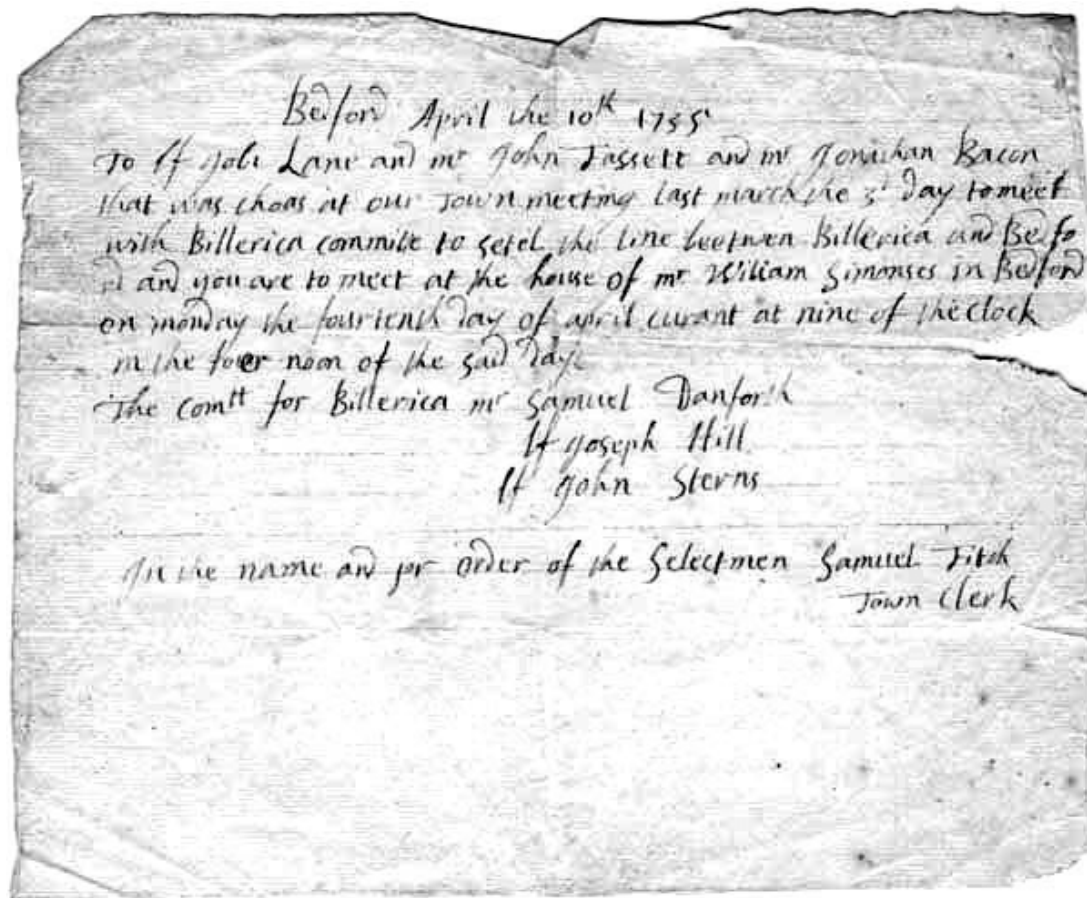 Bedford April the 10th 1735
To Lt Job Lane and mr John Fassett and mr Jonathan Bacon
that was choas at our Town meeting last march the 3d day to meet
with Billerica commite to setel the line beetwen Billerica and Bedfo
rd and you are to meet at the house of mr William Simonses in Bedford
on monday the fourtenth day of april curant at nine of the clock
in the foer noon of the said day
The comtt for Billerica mr Samuel Danforth
Lt Joseph Hill
Lt John Sterns
In the name and pr order of the Selectmen Samuel Fitch
Town Clerk